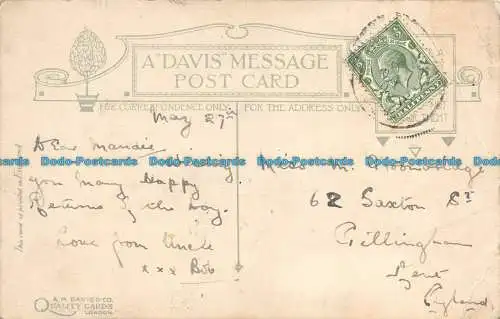 A "DAVIS" MESSAGE
POST CARD
FOR CORRESPONDENCE ONLY
FOR THE ADDRESS ONLY
HALFPENNY
May 27th
Dear Maudie
you many Happy
Returns of the Day.
Love from Uncle
x x x Bob
Miss M.
62 Saxton St
Gillingham
Kent
England
Dodo-Postcards Dodo-Postcards Dodo-Postcards Dodo-Postcards Dodo-Postcards
A.M. DAVIS & CO.
QUALITY CARDS
LONDON